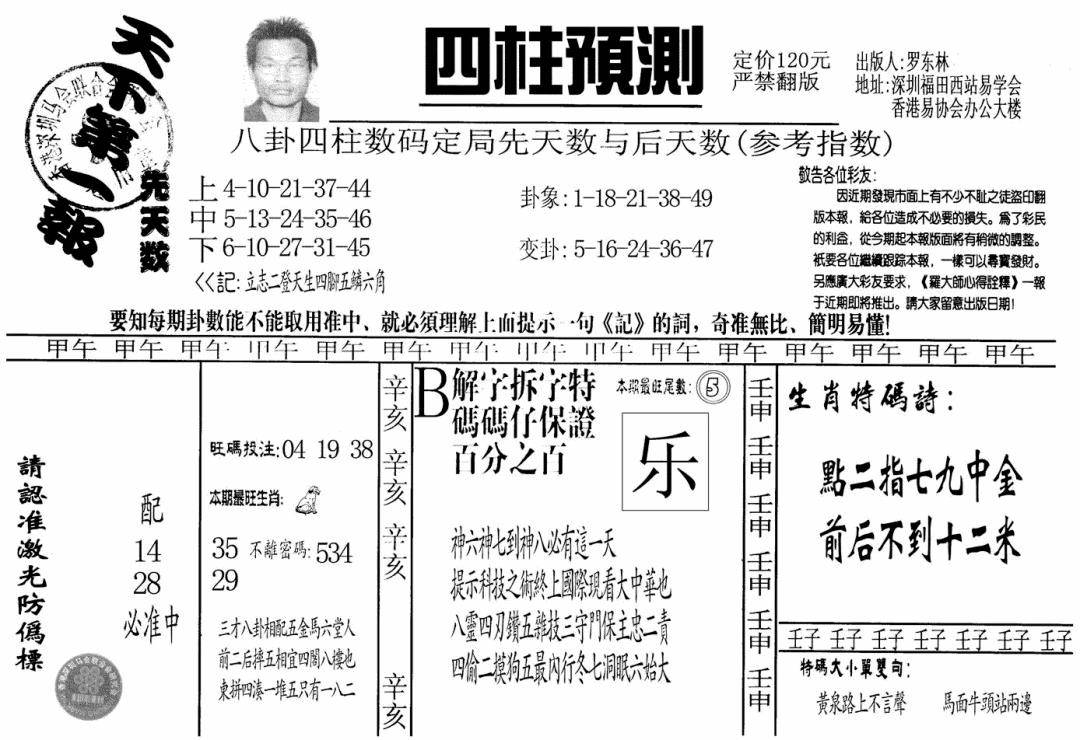 天下第一報
四柱預測
定价120元
严禁翻版
出版人:罗东林
地址:深圳福田西站易学会
香港易协会办公大楼
八卦四柱数码定局先天数与后天数(参考指数)
先天数
上4-10-21-37-44
中5-13-24-35-46
下6-10-27-31-45
<<記:立志二登天生四腳五鱗六角
卦象:1-18-21-38-49
变卦:5-16-24-36-47
敬告各位彩友:
因近期發現市面上有不少不耻之徒盜印翻
版本報,給各位造成不必要的損失。爲了彩民
的利益,從今期起本報版面將有稍微的調整。
衹要各位繼續跟踪本報,一樣可以尋寶發財。
另應廣大彩友要求,《羅大師心得詮釋》一報
于近期即將推出。請大家留意出版日期!
要知每期卦數能不能取用准中、就必須理解上面提示一句《記》的詞,奇准無比、簡明易懂!
甲午 甲午 甲午 甲午 甲午 甲午 甲午 甲午 甲午 甲午 甲午 甲午 甲午 甲午 甲午
請認准激光防僞標
配
14
28
必准中
旺碼投注:04 19 38
本期最旺生肖:
35 不離密碼:534
29
三才八卦相配五金馬六堂人
前二后摔五相宜四閣八樓也
東拼四湊一堆五只有一八二
辛亥
辛亥
辛亥
辛亥
B解字拆字特
碼碼仔保證
百分之百
本期最旺尾數:5
乐
神六神七到神八必有這一天
提示科技之術終上國際現看大中華也
八靈四刃鑽五雜技三守門保主忠二責
四偷二摸狗五最內行冬七洞眠六始大
壬申
壬申
壬申
壬申
壬申
壬申
生肖特碼詩:
點二指七九中金
前后不到十二米
壬子 壬子 壬子 壬子 壬子 壬子 壬子
特碼大小單雙句:
黃泉路上不言聲 馬面牛頭站兩邊